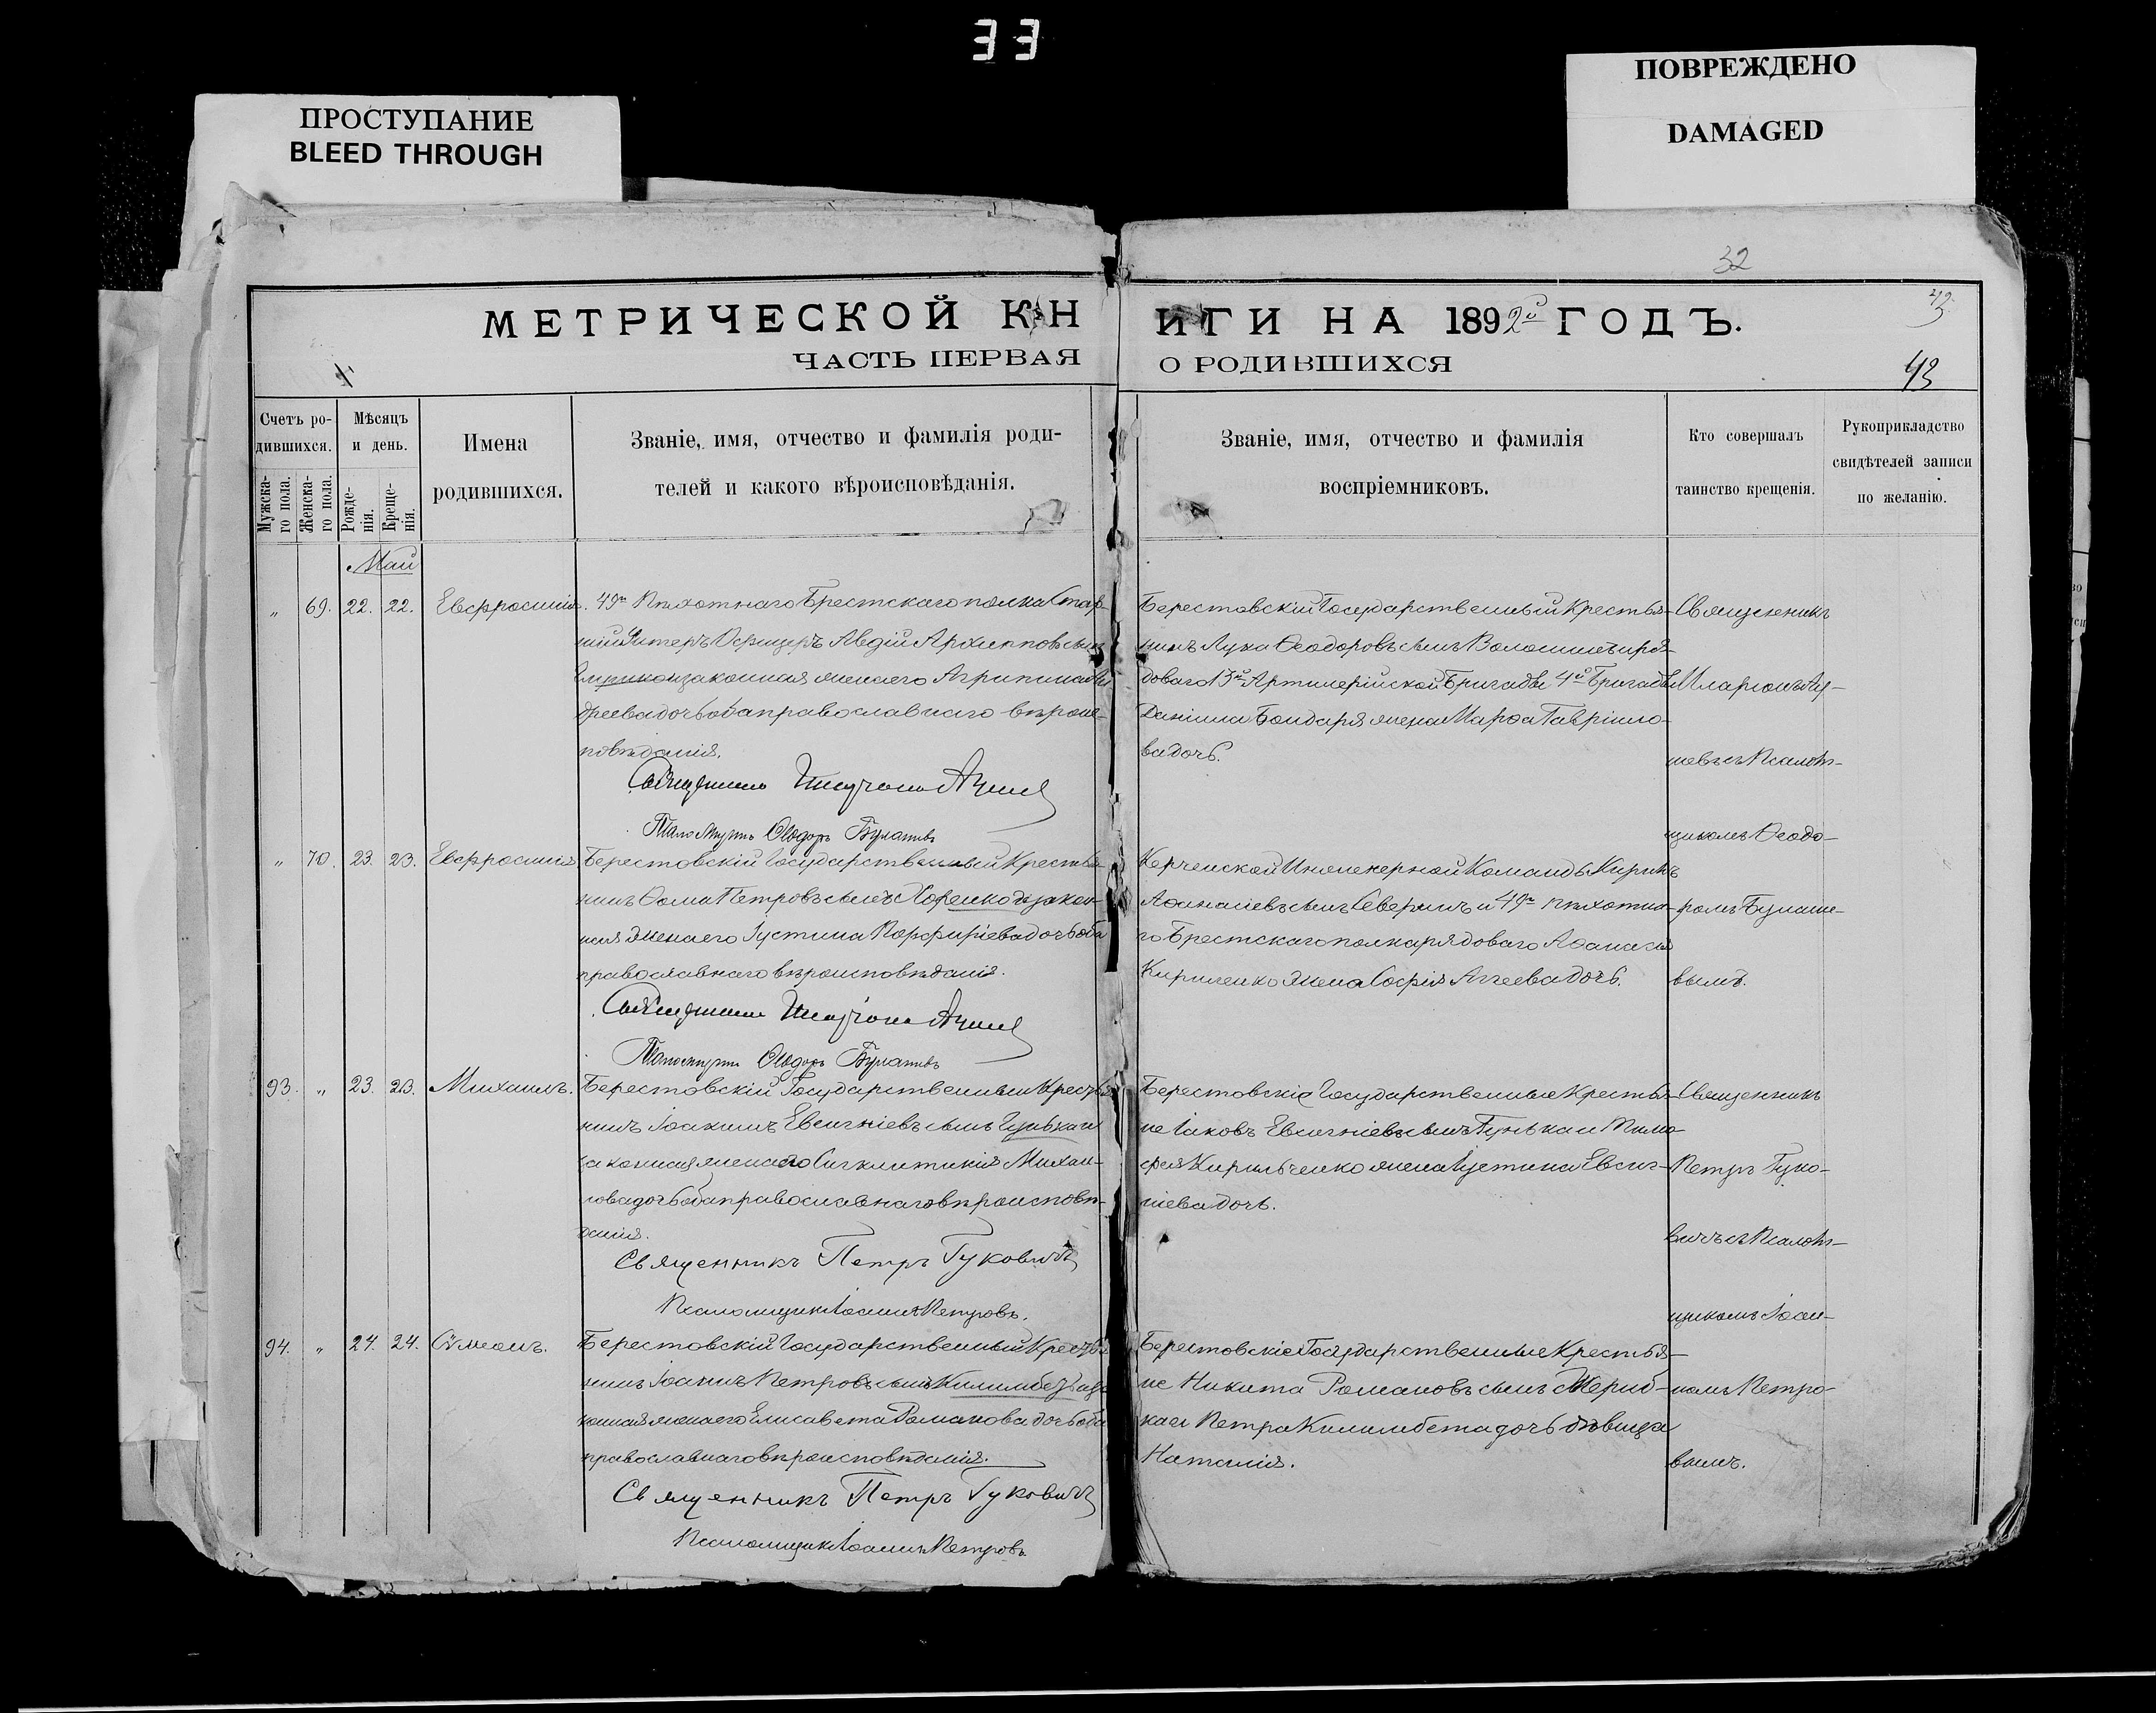 33
ПРОСТУПАНИЕ
BLEED THROUGH
ПОВРЕЖДЕНО
DAMAGED
32
МЕТРИЧЕСКОЙ КН
ИГИ НА 1892й ГОДЪ.
ЧАСТЬ ПЕРВАЯ
О РОДИВШИХСЯ
43
Счетъ ро-
дившихся.
Мужска-
го пола.
Женска-
го пола.
Мѣсяцъ
и день.
Рожде-
нія.
Креще-
нія.
Имена
родившихся.
Званіе, имя, отчество и фамилія роди-
телей и какого вѣроисповѣданія.
Званіе, имя, отчество и фамилія
воспріемниковъ.
Кто совершалъ
таинство крещенія.
Рукоприкладство
свидѣтелей записи
по желанію.
Май
„ 69. 22. 22. Евфросинія. 49го Пѣхотнаго Брестскаго полка Стар-
шій Унтеръ Офицеръ Авдій Архиповъ сынъ
законная жена его Агрипина Ан
дреева дочь оба православнаго вѣроис-
повѣданія.
Священникъ
Псаломщикъ Ѳеодоръ
Берестовскій Государственный Крестья-
нинъ Лука Ѳеодоровъ сынъ Волошинъ и ря-
доваго 13й Артилерійской Бригады 4й Бригады
Даніила Бондаря жена Марѳа Гавріило-
ва дочь.
„ 70. 23. 23. Евфросинія Берестовскій Государственный Крестья-
нинъ Ѳома Петровъ сынъ Хоренко и закон-
ная жена его Іустина Порфиріева дочь оба
православнаго вѣроисповѣданія.
Священникъ
Псаломщикъ Ѳеодоръ
Керченской Инженерной Команды Кирилъ
Аѳанасіевъ сынъ Северинъ и 49го пѣхотна-
го Брестскаго полка рядоваго Аѳанасія
Кириленко жена Софія Аггеева дочь.
Священникъ
Иларіонъ Ау-
шевъ съ Псалом-
щикомъ Ѳеодо-
ромъ Булаше-
вымъ.
93. „ 23. 23. Михаилъ. Берестовскій Государственный Крестья-
нинъ Іоакимъ Евсигніевъ сынъ Гунька и
законная жена его Сигклитикія Михаи-
лова дочь оба православнаго вѣроисповѣ-
данія.
Священникъ Петръ Гуковичъ
Псаломщикъ Іоаннъ Петровъ.
Берестовскіе Государственные Крестья-
не Іаковъ Евсигніевъ сынъ Гунька и Тимо
фея Кирильченко жена Іустина Евсиг-
ніева дочь.
94. „ 24. 24. Сѵмеонъ. Берестовскій Государственный Крестья-
нинъ Іоаннъ Петровъ сынъ Килимбетъ и за
конная жена его Елисавета Романова дочь оба
православнаго вѣроисповѣданія.
Священникъ Петръ Гуковичъ
Псаломщикъ Іоаннъ Петровъ
Берестовскіе Государственные Крестья-
не Никита Романовъ сынъ Жериб-
ка и Петра Килимбета дочь дѣвица
Наталія.
Священникъ
Петръ Гуко-
вичъ съ Псалом-
щикомъ Іоан-
номъ Петро-
вымъ.